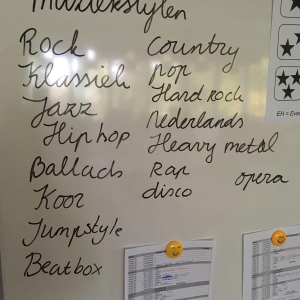 Muziekstylen
Rock
Klassiek
Jazz
Hiphop
Ballads
Koor
Jumpstyle
Beatbox
Country
pop
Hard rock
Nederlands
Heavy metal
Rap
disco
opera